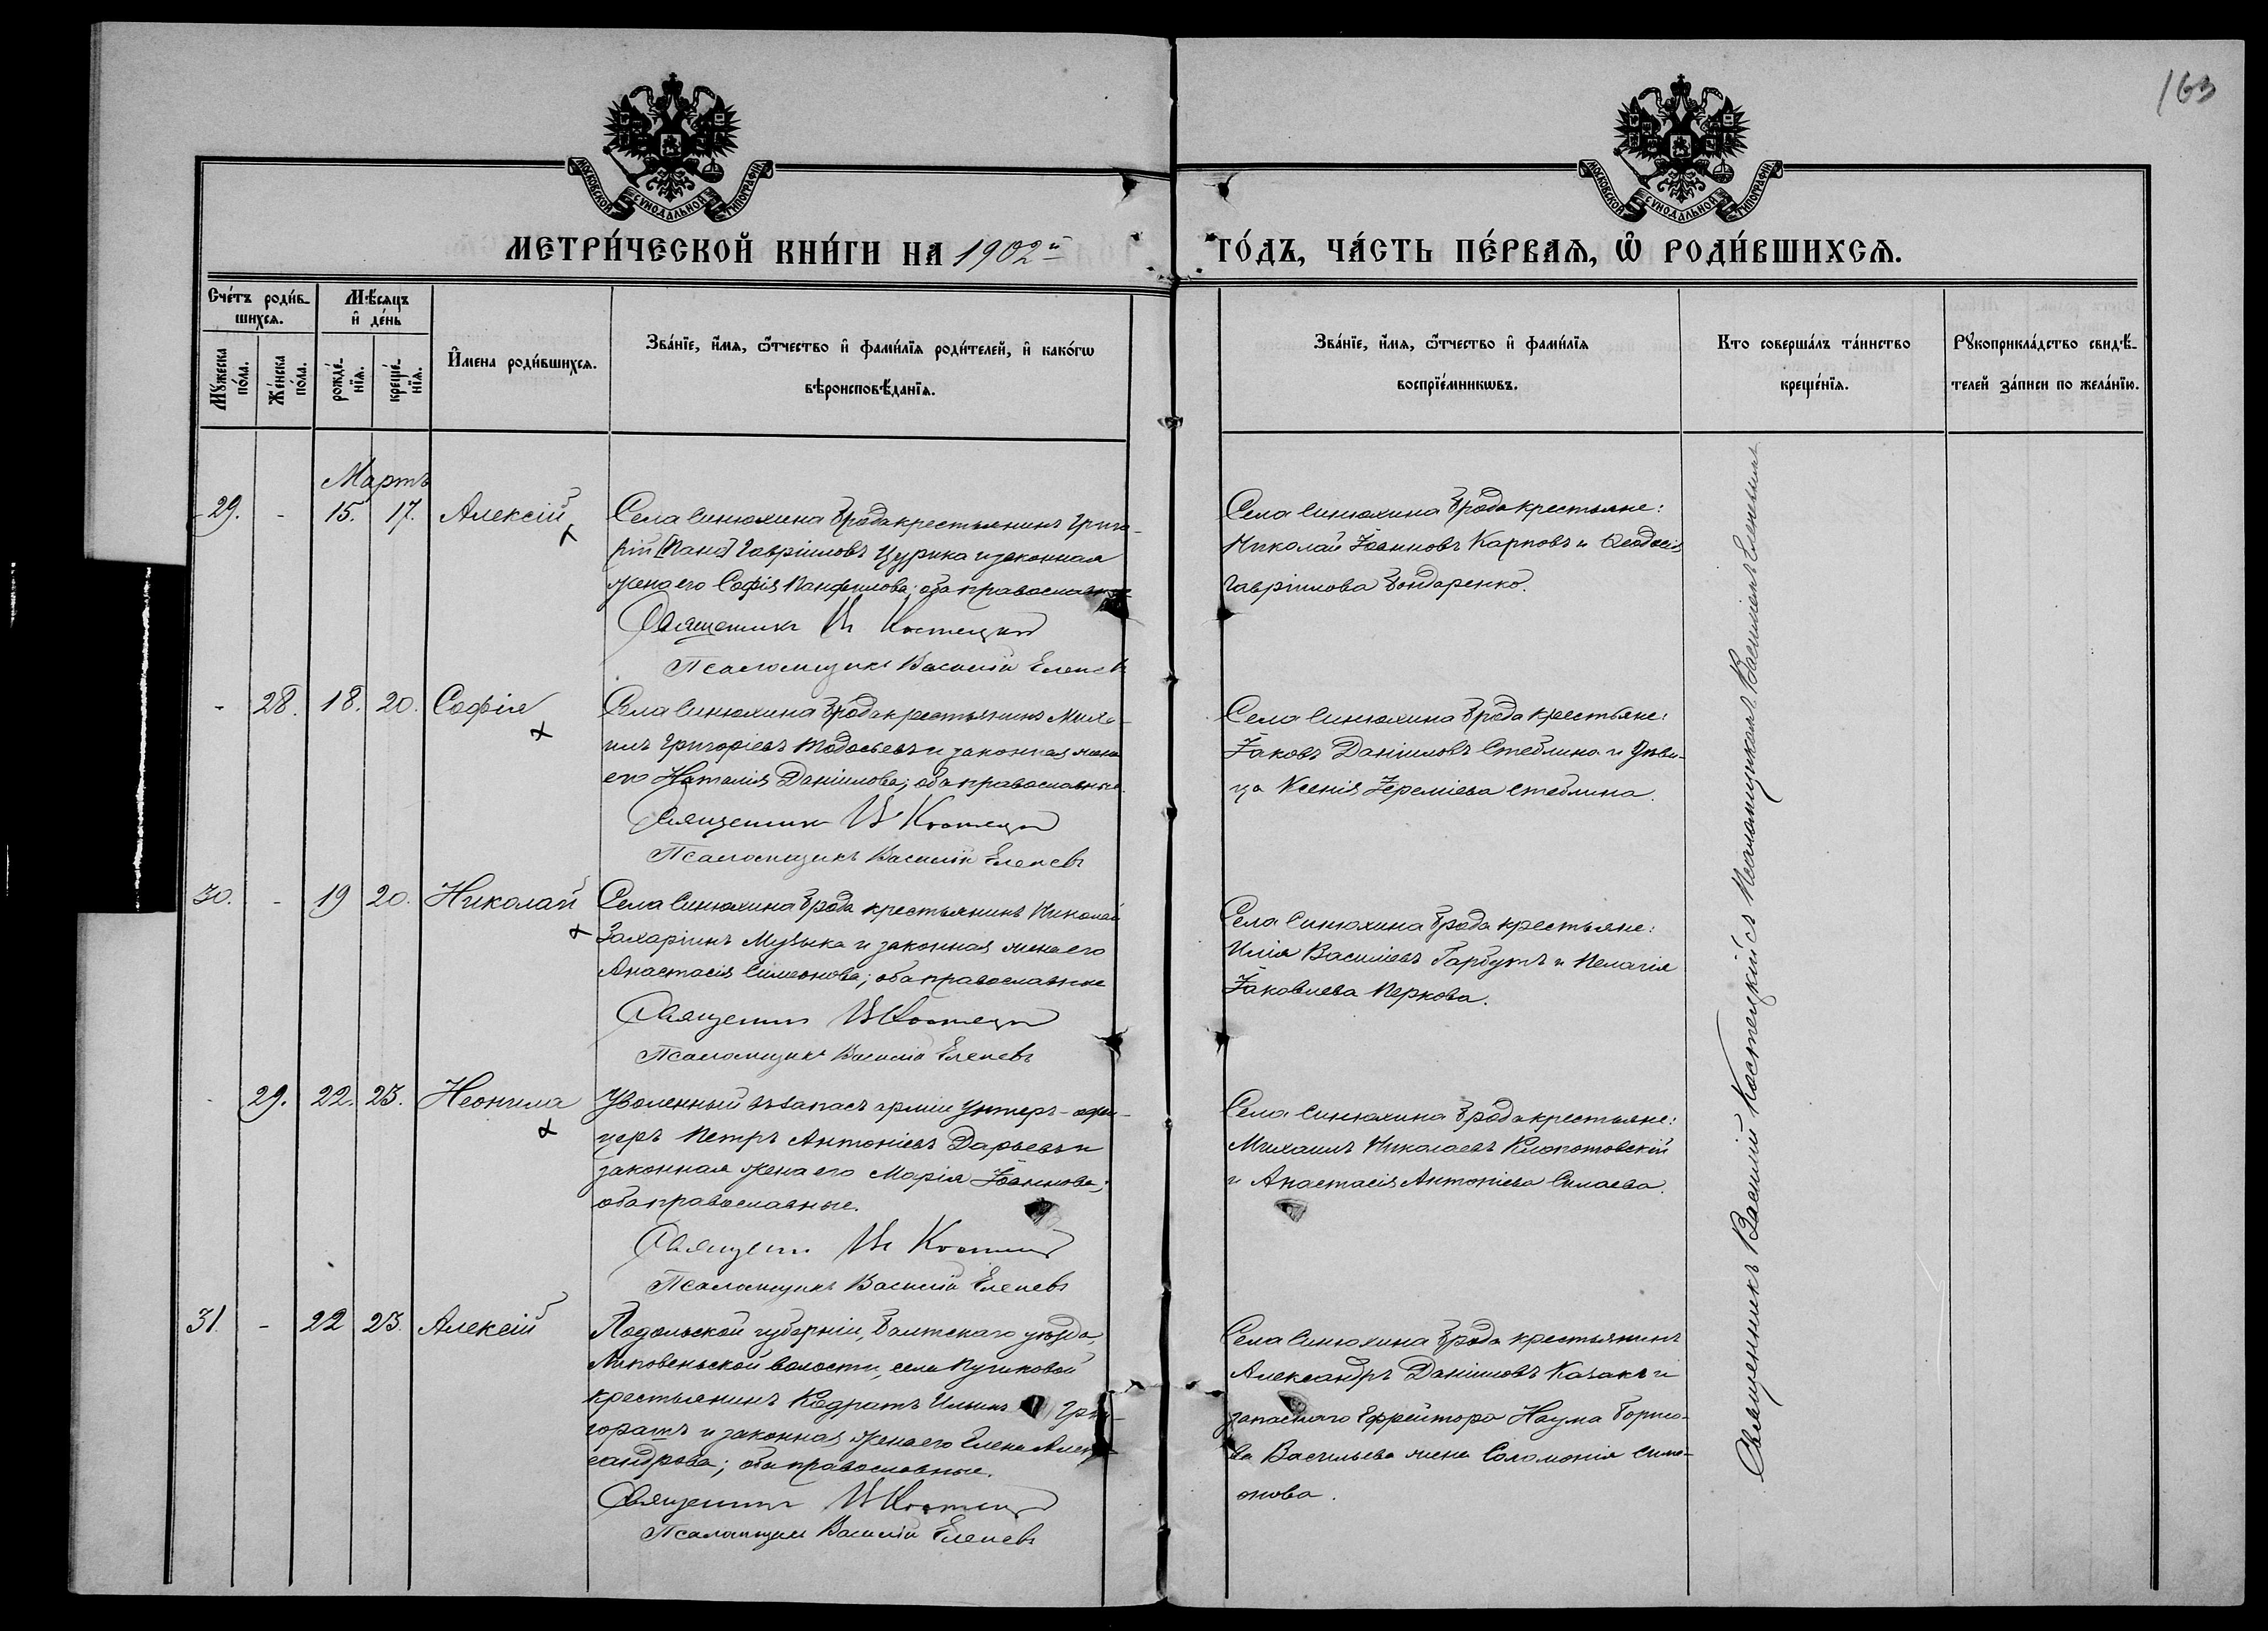 163
МОСКОВСКОЙ СѴНОДАЛЬНОЙ ТИПОГРАФІИ
МОСКОВСКОЙ СѴНОДАЛЬНОЙ ТИПОГРАФІИ
МЕТРИ́ЧЕСКОЙ КНИ́ГИ НА 1902й
ГО́ДЪ, ЧА́СТЬ ПЕ́РВАѦ, Ѡ҆ РОДИ́ВШИХСѦ.
Сче́тъ роди́в-
шихсѧ.
Мѣ́сѧцъ
и҆ де́нь
Мꙋ́жеска
по́ла.
Же́нска
по́ла.
рожде́-
нїѧ.
креще́-
нїѧ.
И҆мена роди́вшихсѧ.
Зва́нїе, и҆́мѧ, ѻ҆́тчество и҆ фами́лїѧ роди́телей, и҆ како́гѡ
вѣроисповѣ́данїѧ.
Зва́нїе, и҆́мѧ, ѻ҆́тчество и҆ фами́лїѧ
воспрїе́мникѡвъ.
Кто соверша́лъ та́инство
креще́нїѧ.
Рꙋкоприкла́дство свидѣ́-
телей за́писи по жела́нїю.
Мартъ
29. - 15. 17. Алексій
Села Синюхина Брода крестьянинъ Григо-
рій [Пана] Гавріиловъ Цурика и законная
жена его Софія Панфилова; оба православные
Священникъ В Костецкій
Псаломщикъ Василій Еленевъ
Села Синюхина Брода крестьяне:
Николай Іоанновъ Карповъ и Ѳеодосія
Гавріилова Бондаренко.
- 28. 18. 20. Софія
Села Синюхина Брода крестьянинъ Миха-
илъ Григоріевъ Тодосьевъ и законная жена
его Наталія Даніилова; оба православные.
Священник В Костецкій
Псаломщикъ Василій Еленевъ
Села Синюхина Брода крестьяне:
Іаковъ Даніиловъ Стеблина и дѣви-
ца Ксенія Іереміева Стеблина.
30. - 19 20. Николай
Села Синюхина Брода крестьянинъ Николай
Захаріинъ Музыка и законная жена его
Анастасія Симеонова; оба православные
Священник В Костецкій
Псаломщикъ Василій Еленевъ
Села Синюхина Брода крестьяне:
Илія Василіевъ Гарбузъ и Пелагія
Іаковлева Перкова.
- 29. 22. 23. Неонила
Уволенный въ запасъ арміи унтеръ-офи-
церъ Петръ Антоніевъ Дарьевъ и
законная жена его Марія Іоаннова;
оба православные.
Священ В Костецкій
Псаломщикъ Василій Еленевъ
Села Синюхина Брода крестьяне:
Михаилъ Николаевъ Клопотовскій
и Анастасія Антоніева Силаева.
31. - 22 23. Алексій
Подольской губерніи, Балтскаго уѣзда,
Липовеньской волости, села Пушковой
крестьянинъ Кодратъ Ильинъ Гри-
горатъ и законная жена его Елена Алек-
сандрова; оба православные.
Священник В Костецкій
Псаломщик Василій Еленевъ
Села Синюхина Брода крестьянинъ
Александръ Даніиловъ Казакъ и
запаснаго Ефрейтора Наума Борисо-
ва Васильева жена Соломонія Симе-
онова.
Священникъ Василій Костецкій съ Псаломщикомъ Василіемъ Еленевымъ